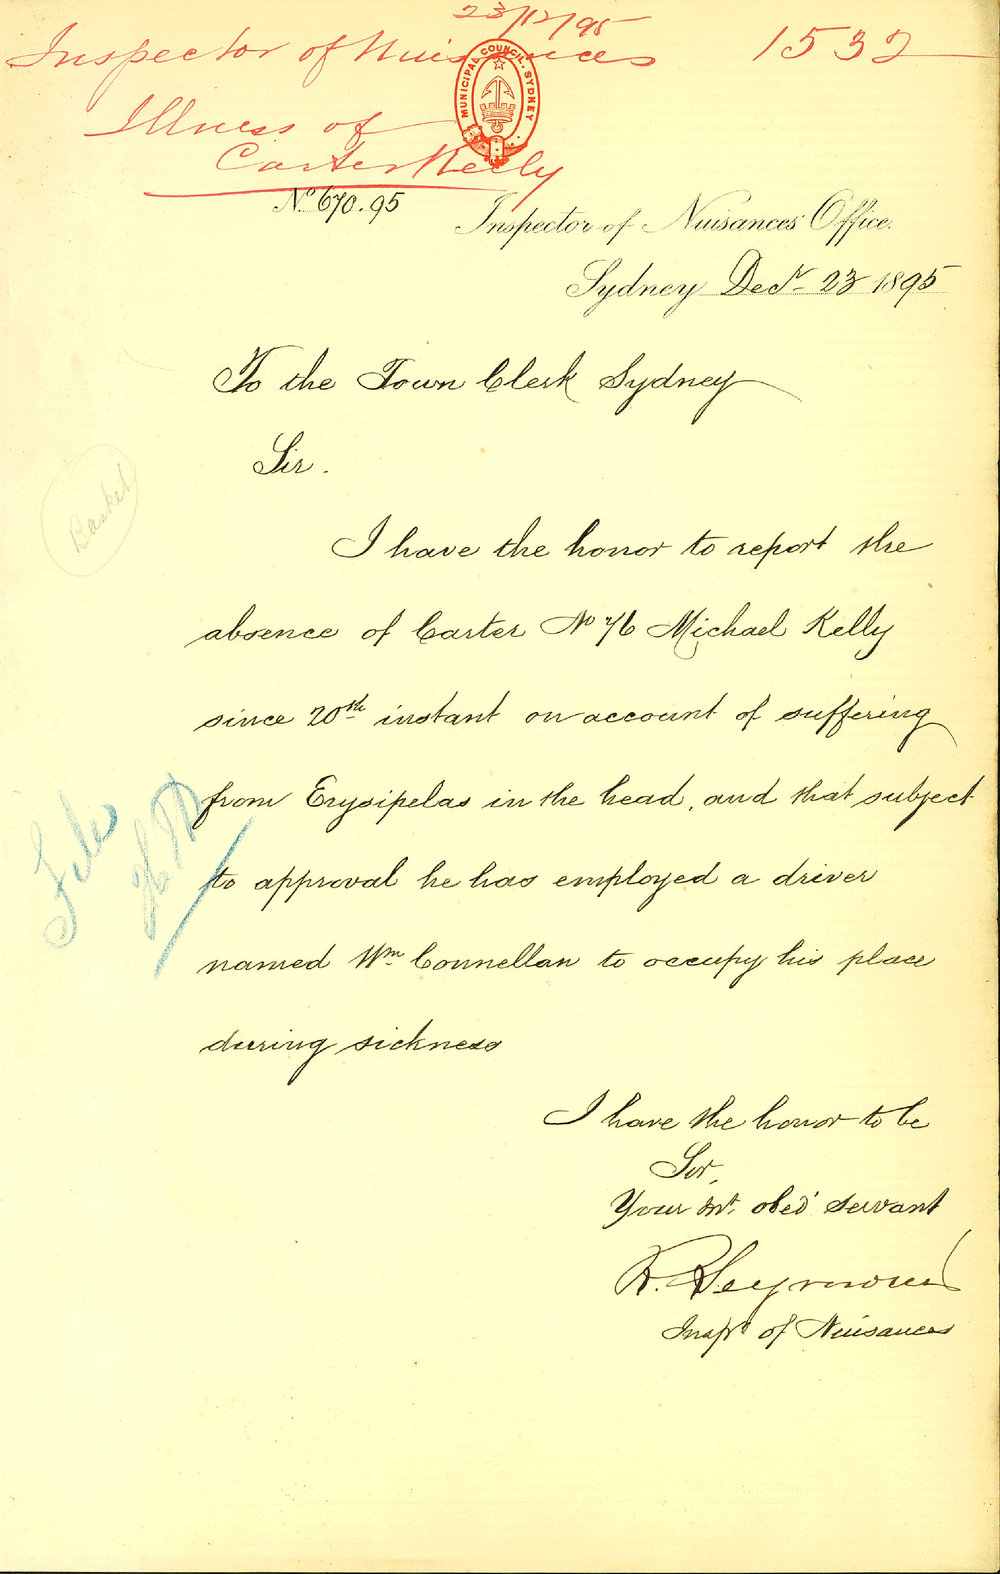 23/12/95
Inspector of Nuisances 1532
MUNICIPAL COUNCIL. SYDNEY
Illness of
Carter Kelly
No 670.95
Inspector of Nuisances' Office.
Sydney Decr 23 1895
To the Town Clerk Sydney
Sir.
Basket
I have the honor to report the
absence of Carter No 76 Michael Kelly
since 20th instant on account of suffering
from Erysipelas in the head, and that subject
to approval he has employed a driver
named Wm Connellan to occupy his place
during sickness
File
I have the honor to be
Sir,
Your mt. obed' servant
R. Seymour
Inspr of Nuisances